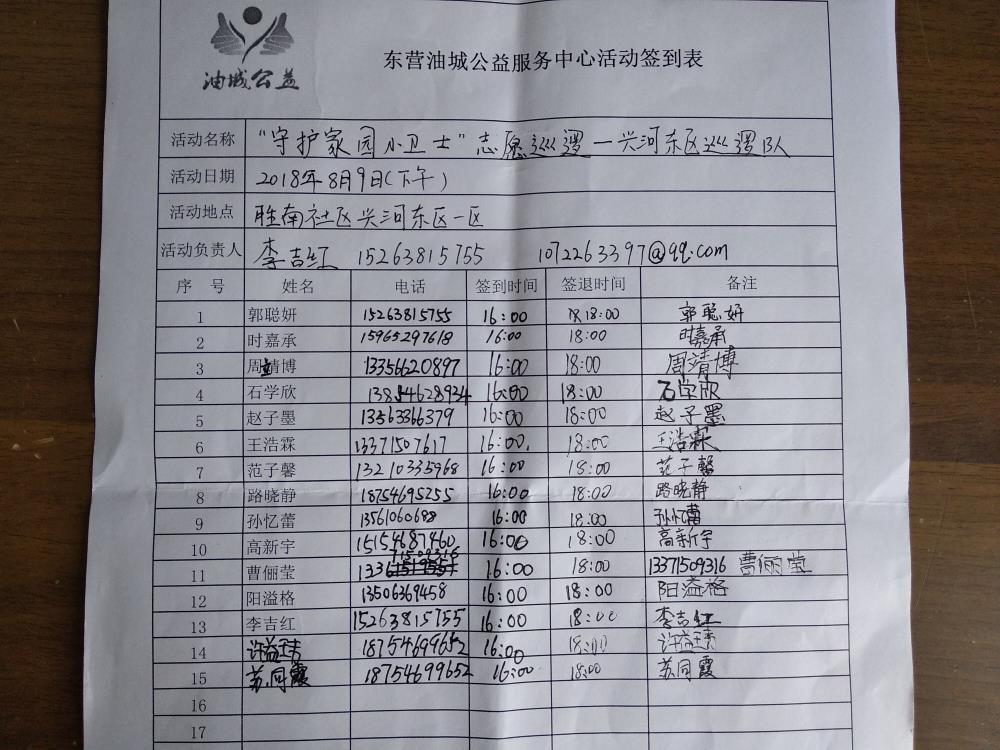 油城公益
东营油城公益服务中心活动签到表
活动名称 “守护家园小卫士”志愿巡逻—兴河东区巡逻队
活动日期 2018年8月9日(下午)
活动地点 胜南社区兴河东区一区
活动负责人 李吉红 15263815755 1072263397@qq.com
序 号 姓名 电话 签到时间 签退时间 备注
1 郭聪妍 15263815755 16:00 18:00 郭聪妍
2 时嘉承 15965297618 16:00 18:00 时嘉承
3 周靖博 13356620897 16:00 18:00 周靖博
4 石学欣 13854628934 16:00 18:00 石学欣
5 赵子墨 13563366379 16:00 18:00 赵子墨
6 王浩霖 13371507617 16:00 18:00 王浩霖
7 范子馨 13210335968 16:00 18:00 范子馨
8 路晓静 18754695255 16:00 18:00 路晓静
9 孙忆蕾 13561060698 16:00 18:00 孙忆蕾
10 高新宇 15154687460 16:00 18:00 高新宇
11 曹俪莹 16:00 18:00 13371509316 曹俪莹
12 阳溢格 13506369458 16:00 18:00 阳溢格
13 李吉红 15263815755 16:00 18:00 李吉红
14 许益瑃 18754699652 16:00 18:00
15 苏同霞 18754699652 16:00 18:00 苏同霞
16
17